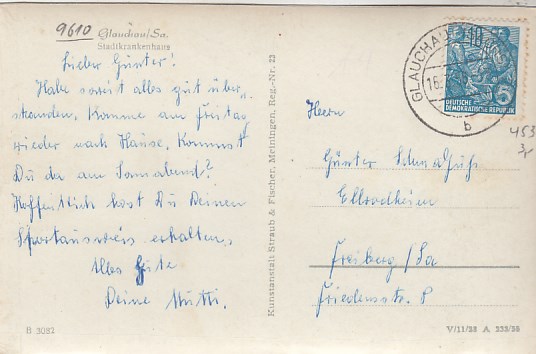 9610
Glauchau/Sa.
Stadtkrankenhaus
Lieber Günter!
Habe soweit alles gut über-
standen, komme am Freitag
wieder nach Hause, kommst
Du da am Sonnabend?
Hoffentlich hast Du Deinen
Sportausweis erhalten,
Alles Gute
Deine Mutti.
B 3082
Kunstanstalt Straub & Fischer, Meiningen, Reg.-Nr. 23
GLAUCHAU
16.
b
10
5
DEUTSCHE
DEMOKRATISCHE REPUBLIK
453
Herrn
Günter
Freiberg/Sa
Friedensstr. 8
V/11/28 A